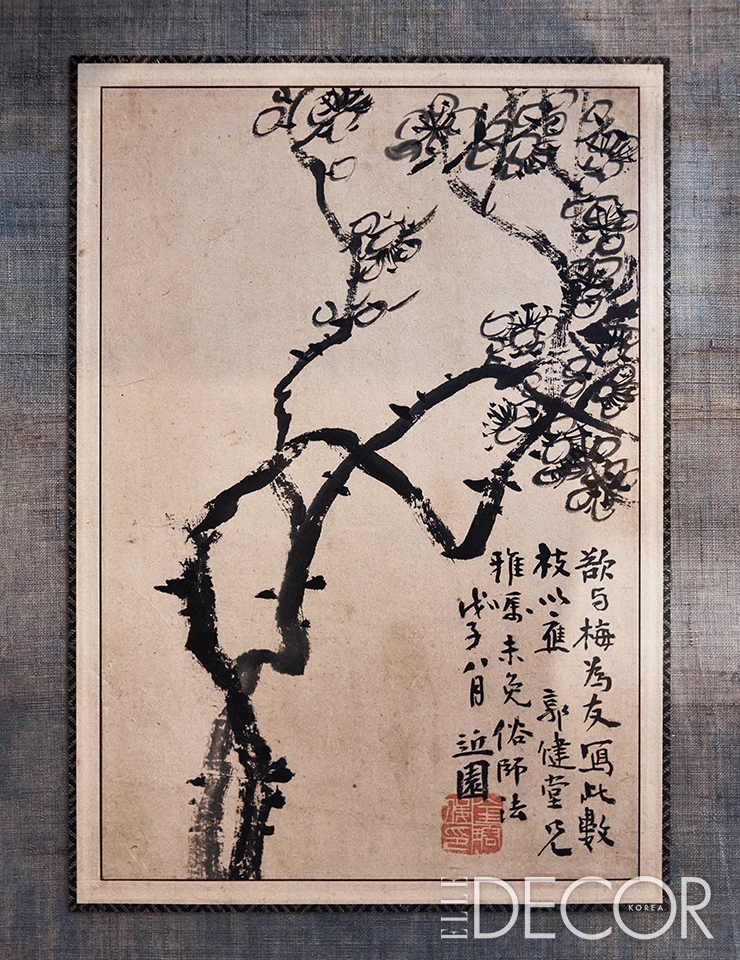 欲与梅為友寫此數
枝以應 郭健堂兄
雅屬未免俗師法
戊子八月 近園
ELLE DECOR
KOREA